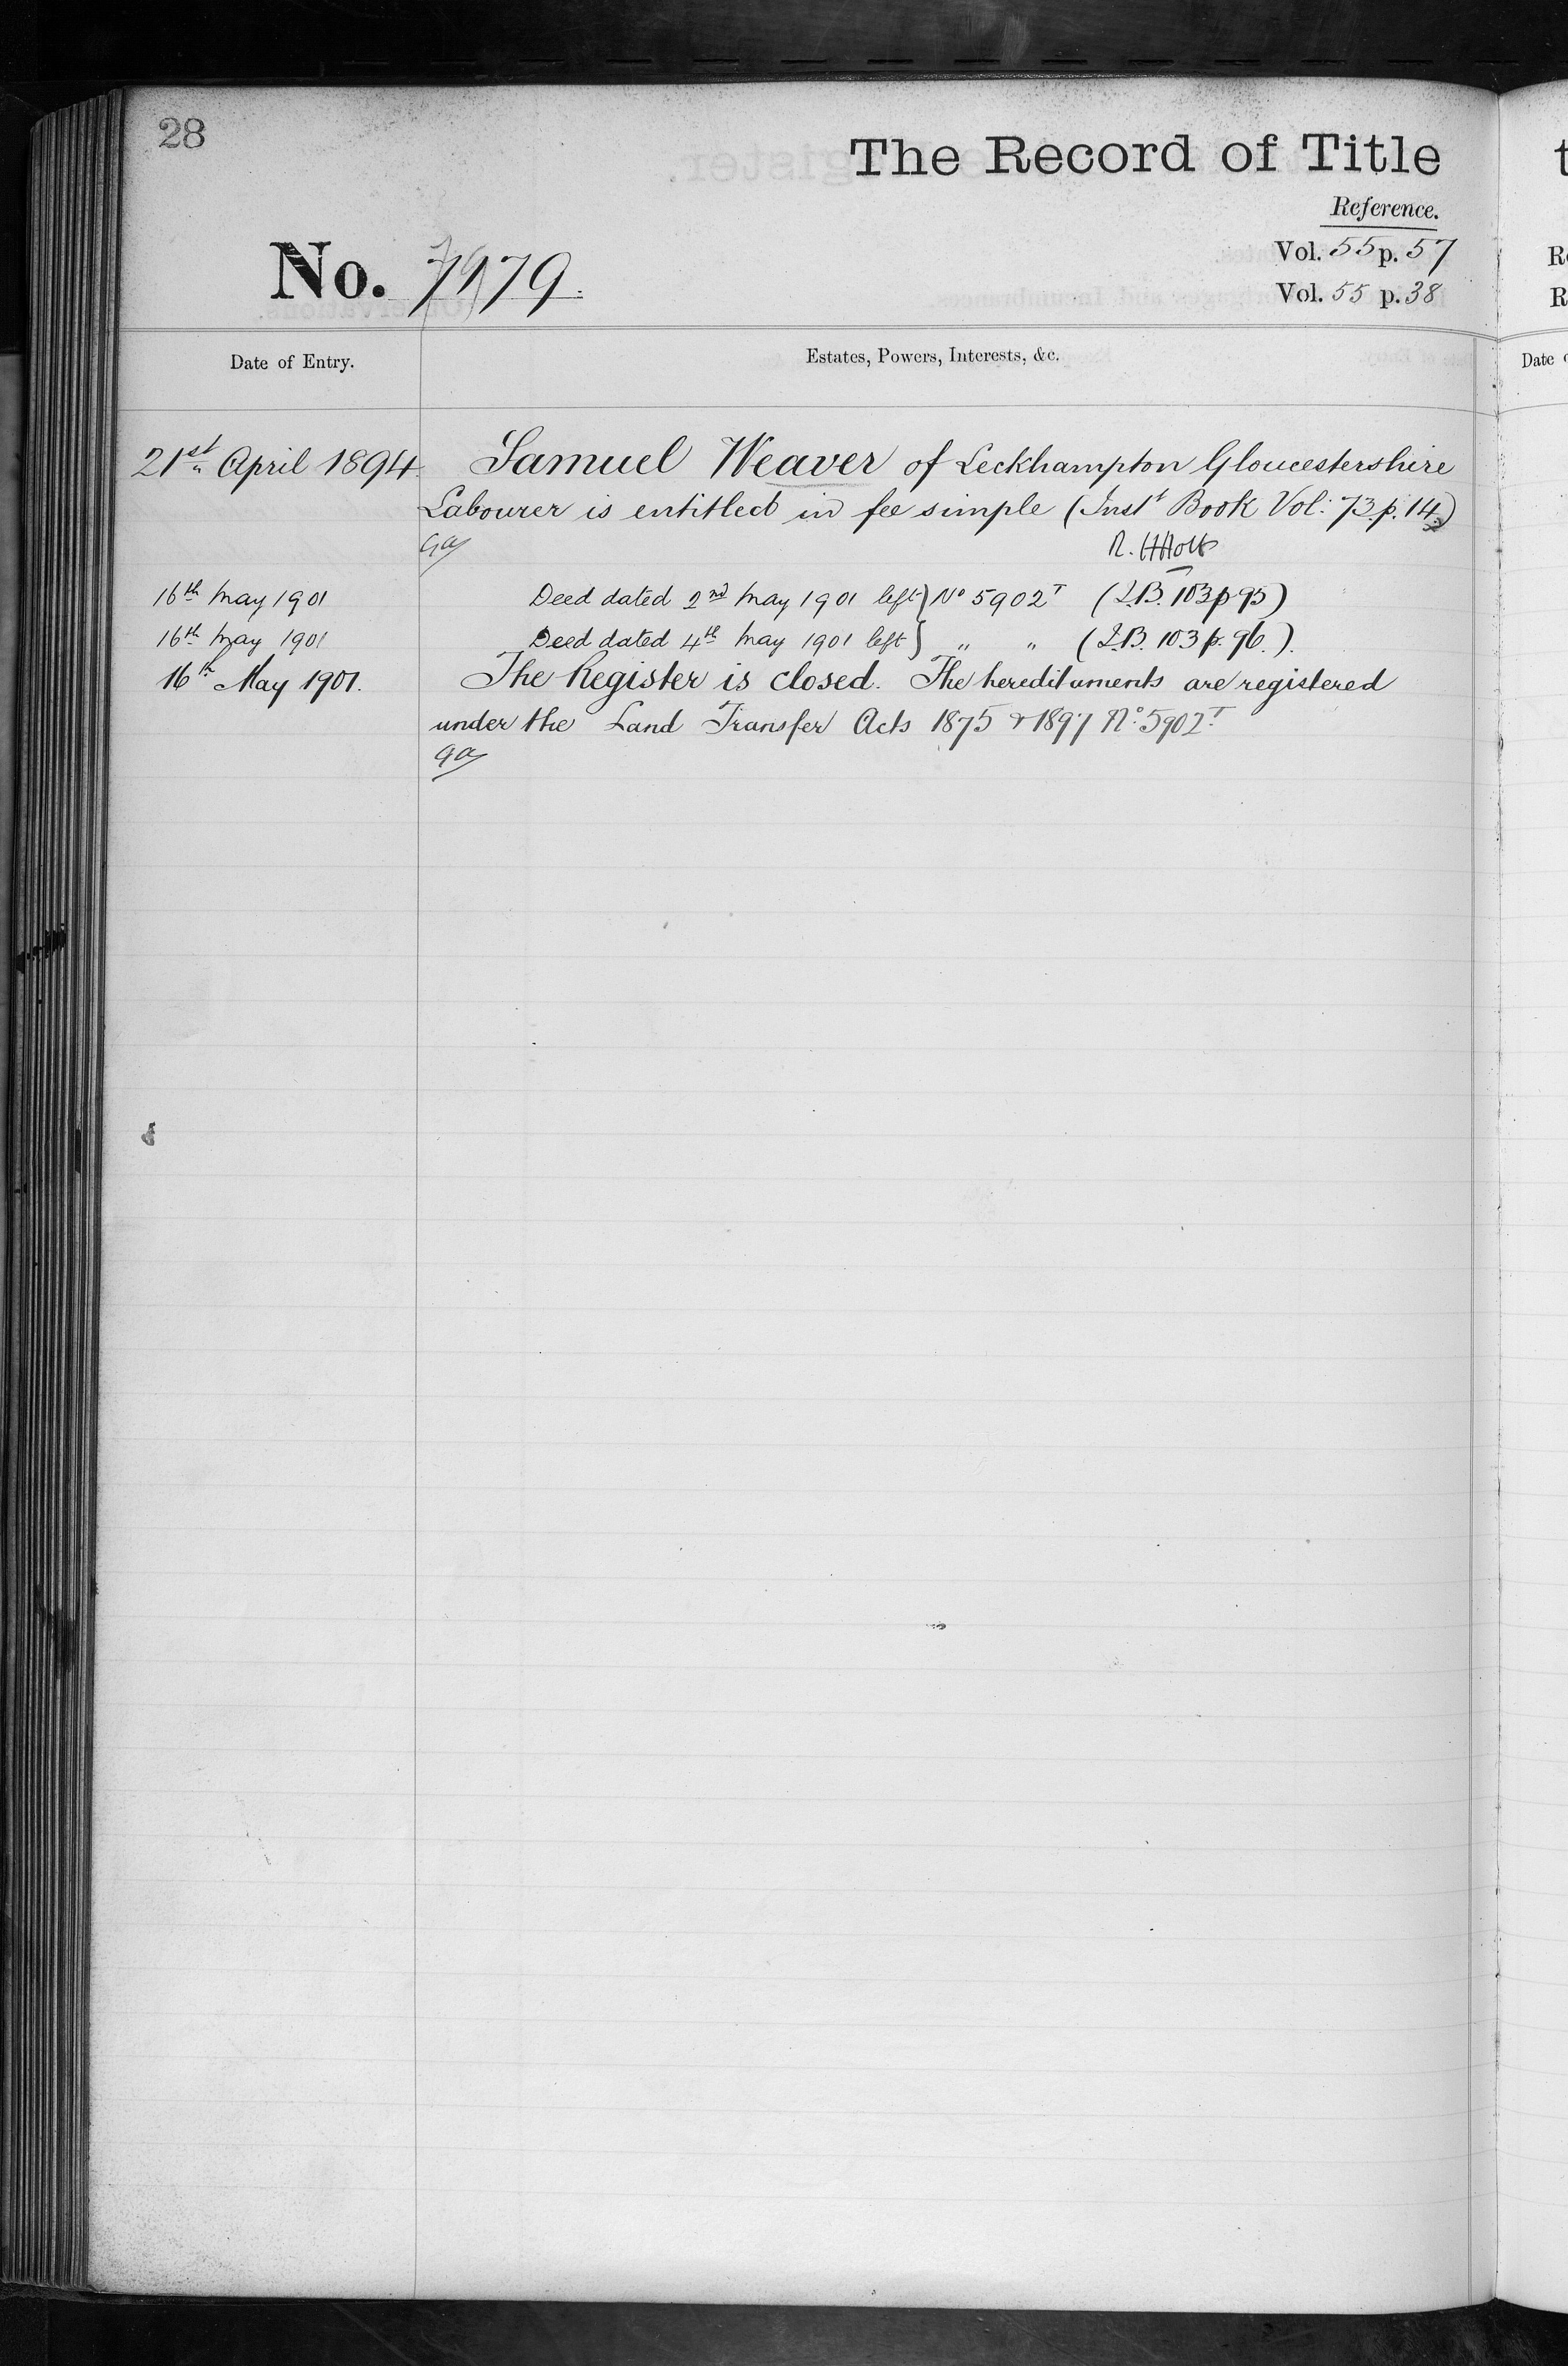 28
The Record of Title
Reference.
No. 7979.
Vol. 55 p. 57
Vol. 55 p. 38
Date of Entry.
Estates, Powers, Interests, &c.
21st April 1894
Samuel Weaver of Leckhampton Gloucestershire
Labourer is entitled in fee simple (Inst Book Vol: 73. p. 14.)
R. H Holt
16th May 1901
Deed dated 2nd May 1901 left } No 5902T (I.B. 103 p 95)
16th May 1901
Deed dated 4th May 1901 left } " " (I.B. 103 p. 96.).
16th May 1901.
The Register is closed. The hereditaments are registered
under the Land Transfer Acts 1875 & 1897 No. 5902T